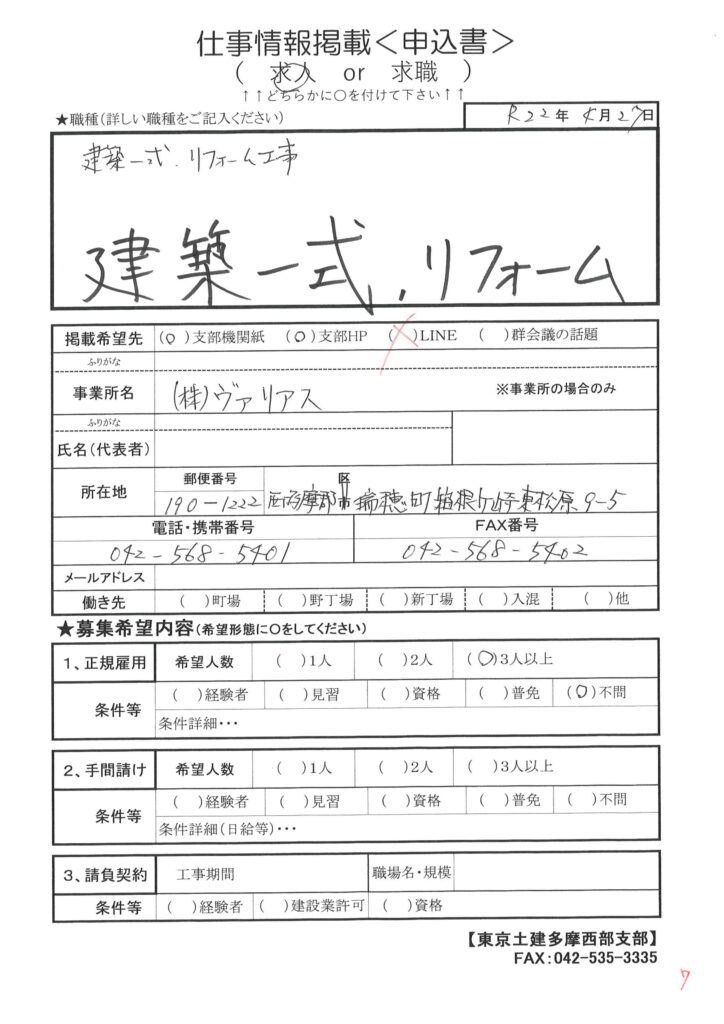 仕事情報掲載<申込書>
( 求人 or 求職 )
↑↑どちらかに○を付けて下さい↑↑
★職種(詳しい職種をご記入ください)
R22年5月27日
建築一式.リフォーム工事
建築一式.リフォーム
掲載希望先 (○)支部機関紙 (○)支部HP ( )LINE ( )群会議の話題
ふりがな
事業所名 (株)ヴァリアス ※事業所の場合のみ
ふりがな
氏名(代表者)
所在地 郵便番号 区
190-1222 西多摩郡市瑞穂町箱根ケ崎東松原9-5
電話・携帯番号 FAX番号
042-568-5401 042-568-5402
メールアドレス
働き先 ( )町場 ( )野丁場 ( )新丁場 ( )入混 ( )他
★募集希望内容(希望形態に○をしてください)
1、正規雇用 希望人数 ( )1人 ( )2人 (○)3人以上
条件等 ( )経験者 ( )見習 ( )資格 ( )普免 (○)不問
条件詳細・・・
2、手間請け 希望人数 ( )1人 ( )2人 ( )3人以上
条件等 ( )経験者 ( )見習 ( )資格 ( )普免 ( )不問
条件詳細(日給等)・・・
3、請負契約 工事期間 職場名・規模
条件等 ( )経験者 ( )建設業許可 ( )資格
【東京土建多摩西部支部】
FAX:042-535-3335
7